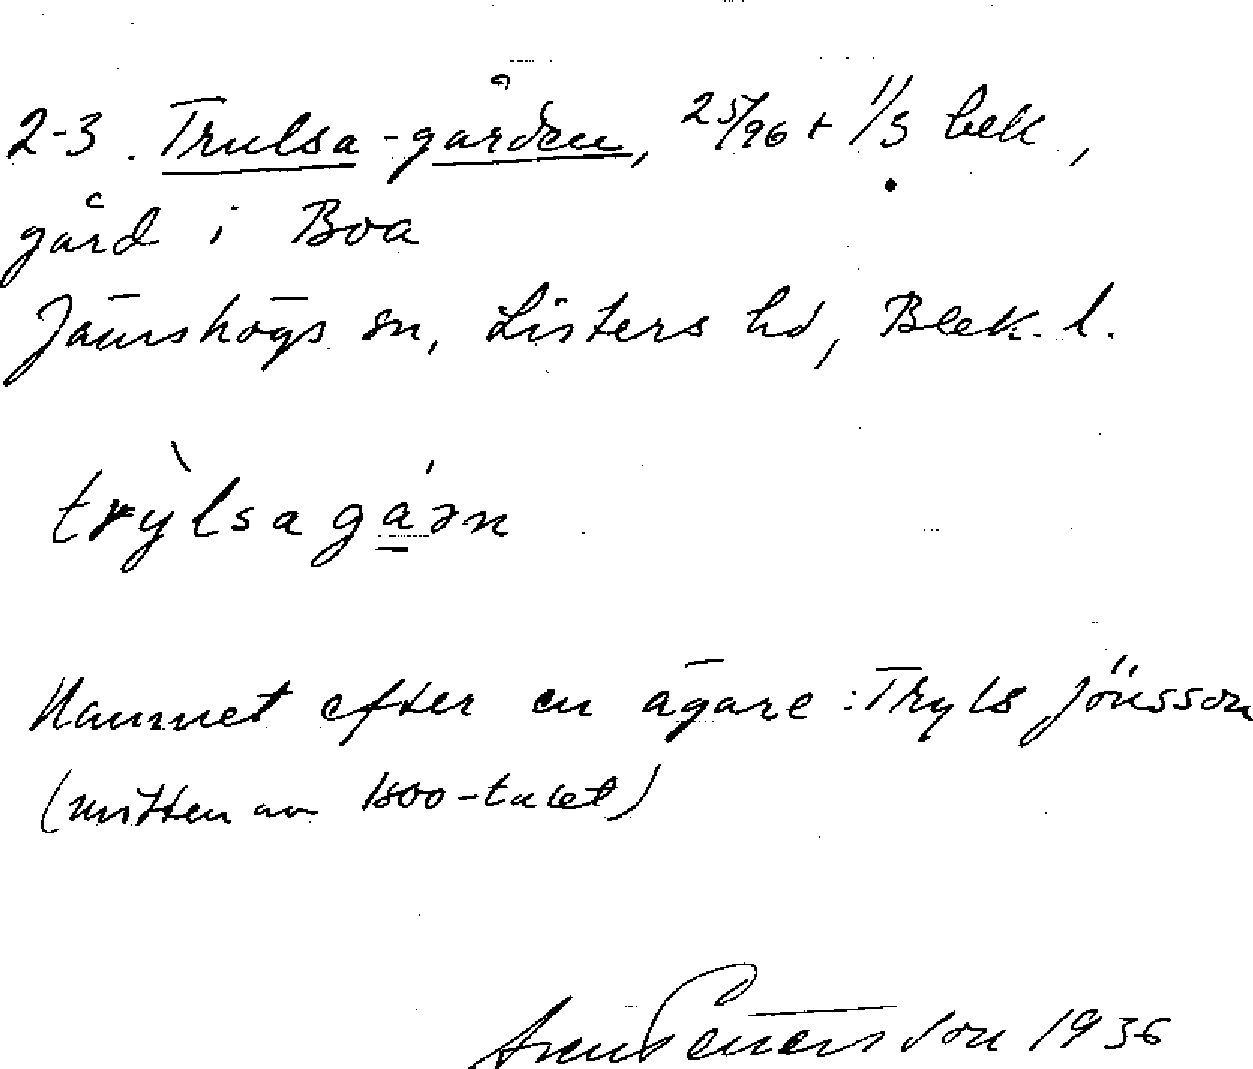 2-3. Trulsa-gården, 25/96 + 1/3 bek,
gård i Boa
Jämshögs sn, Listers hd, Blek. l.
trỳlsagá̱ɔn
Namnet efter en ägare: Tryls Jönsson
(mitten av 1800-talet)
1936